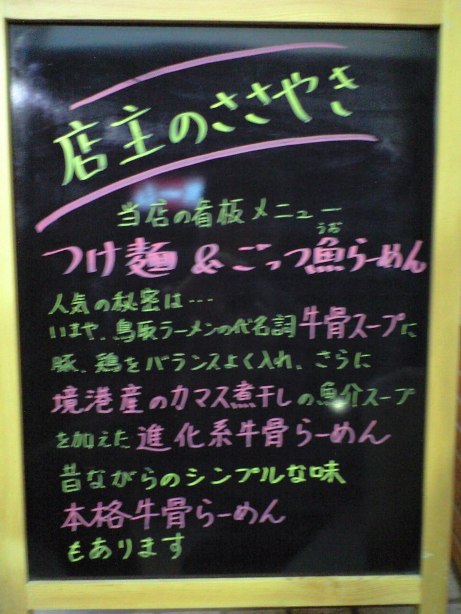 店主のささやき
当店の看板メニュー
うお
つけ麺 & ごっつ魚らーめん
人気の秘密は…
いまや、鳥取ラーメンの代名詞牛骨スープに
豚、鶏をバランスよく入れ、さらに
境港産のカマス煮干しの魚介スープ
を加えた進化系牛骨らーめん
昔ながらのシンプルな味
本格牛骨らーめん
もあります